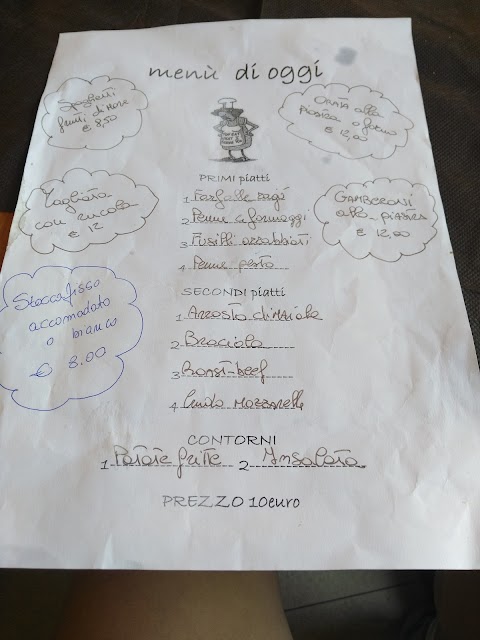 menù di oggi
Spaghetti
frutti di mare
€ 8,50
ORATA alla
piastra o forno
€ 12,00
Tagliata
con rucola
€ 12
GAMBERONI
alla PIASTRA
€ 12,00
Stoccafisso
accomodato
o bianco
€ 8.00
PRIMI piatti
1 Farfalle ragù
2 Penne 4 formaggi
3 Fusilli arrabbiati
4 Penne pesto
SECONDI piatti
1 Arrosto di maiale
2 Braciola
3 Roast-beef
4 Crudo Mozzarella
CONTORNI
1 Patate fritte 2 Insalata
PREZZO 10euro